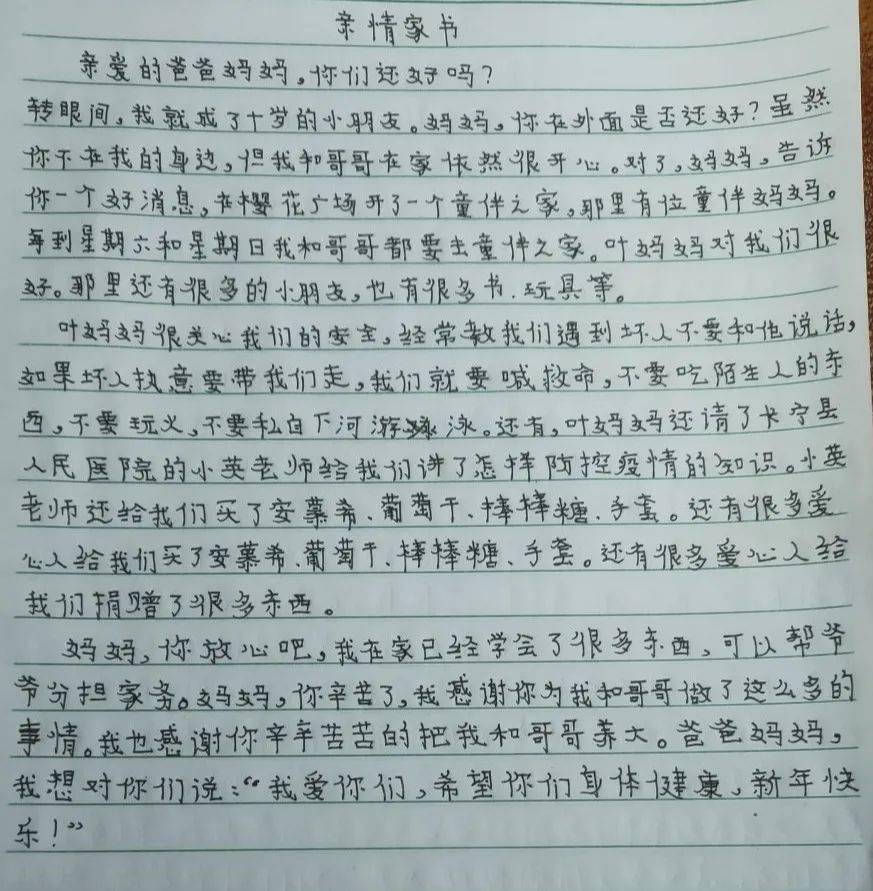 亲情家书
亲爱的爸爸妈妈，你们还好吗？
转眼间，我就成了十岁的小朋友。妈妈，你在外面是否还好？虽然
你不在我的身边，但我和哥哥在家依然很开心。对了，妈妈，告诉
你一个好消息，在樱花广场开了一个童伴之家，那里有位童伴妈妈。
每到星期六和星期日我和哥哥都要去童伴之家。叶妈妈对我们很
好。那里还有很多的小朋友，也有很多书、玩具等。
叶妈妈很关心我们的安全，经常教我们遇到坏人不要和他说话，
如果坏人执意要带我们走，我们就要喊救命，不要吃陌生人的东
西，不要玩火，不要私自下河游泳。还有，叶妈妈还请了长宁县
人民医院的小英老师给我们讲了怎样防控疫情的知识。小英
老师还给我们买了安慕希、葡萄干、棒棒糖、手套。还有很多爱
心人给我们买了安慕希、葡萄干、棒棒糖、手套。还有很多爱心人给
我们捐赠了很多东西。
妈妈，你放心吧，我在家已经学会了很多东西，可以帮爷
爷分担家务。妈妈，你辛苦了，我感谢你为我和哥哥做了这么多的
事情。我也感谢你辛辛苦苦的把我和哥哥养大。爸爸妈妈，
我想对你们说：“我爱你们，希望你们身体健康，新年快
乐！”